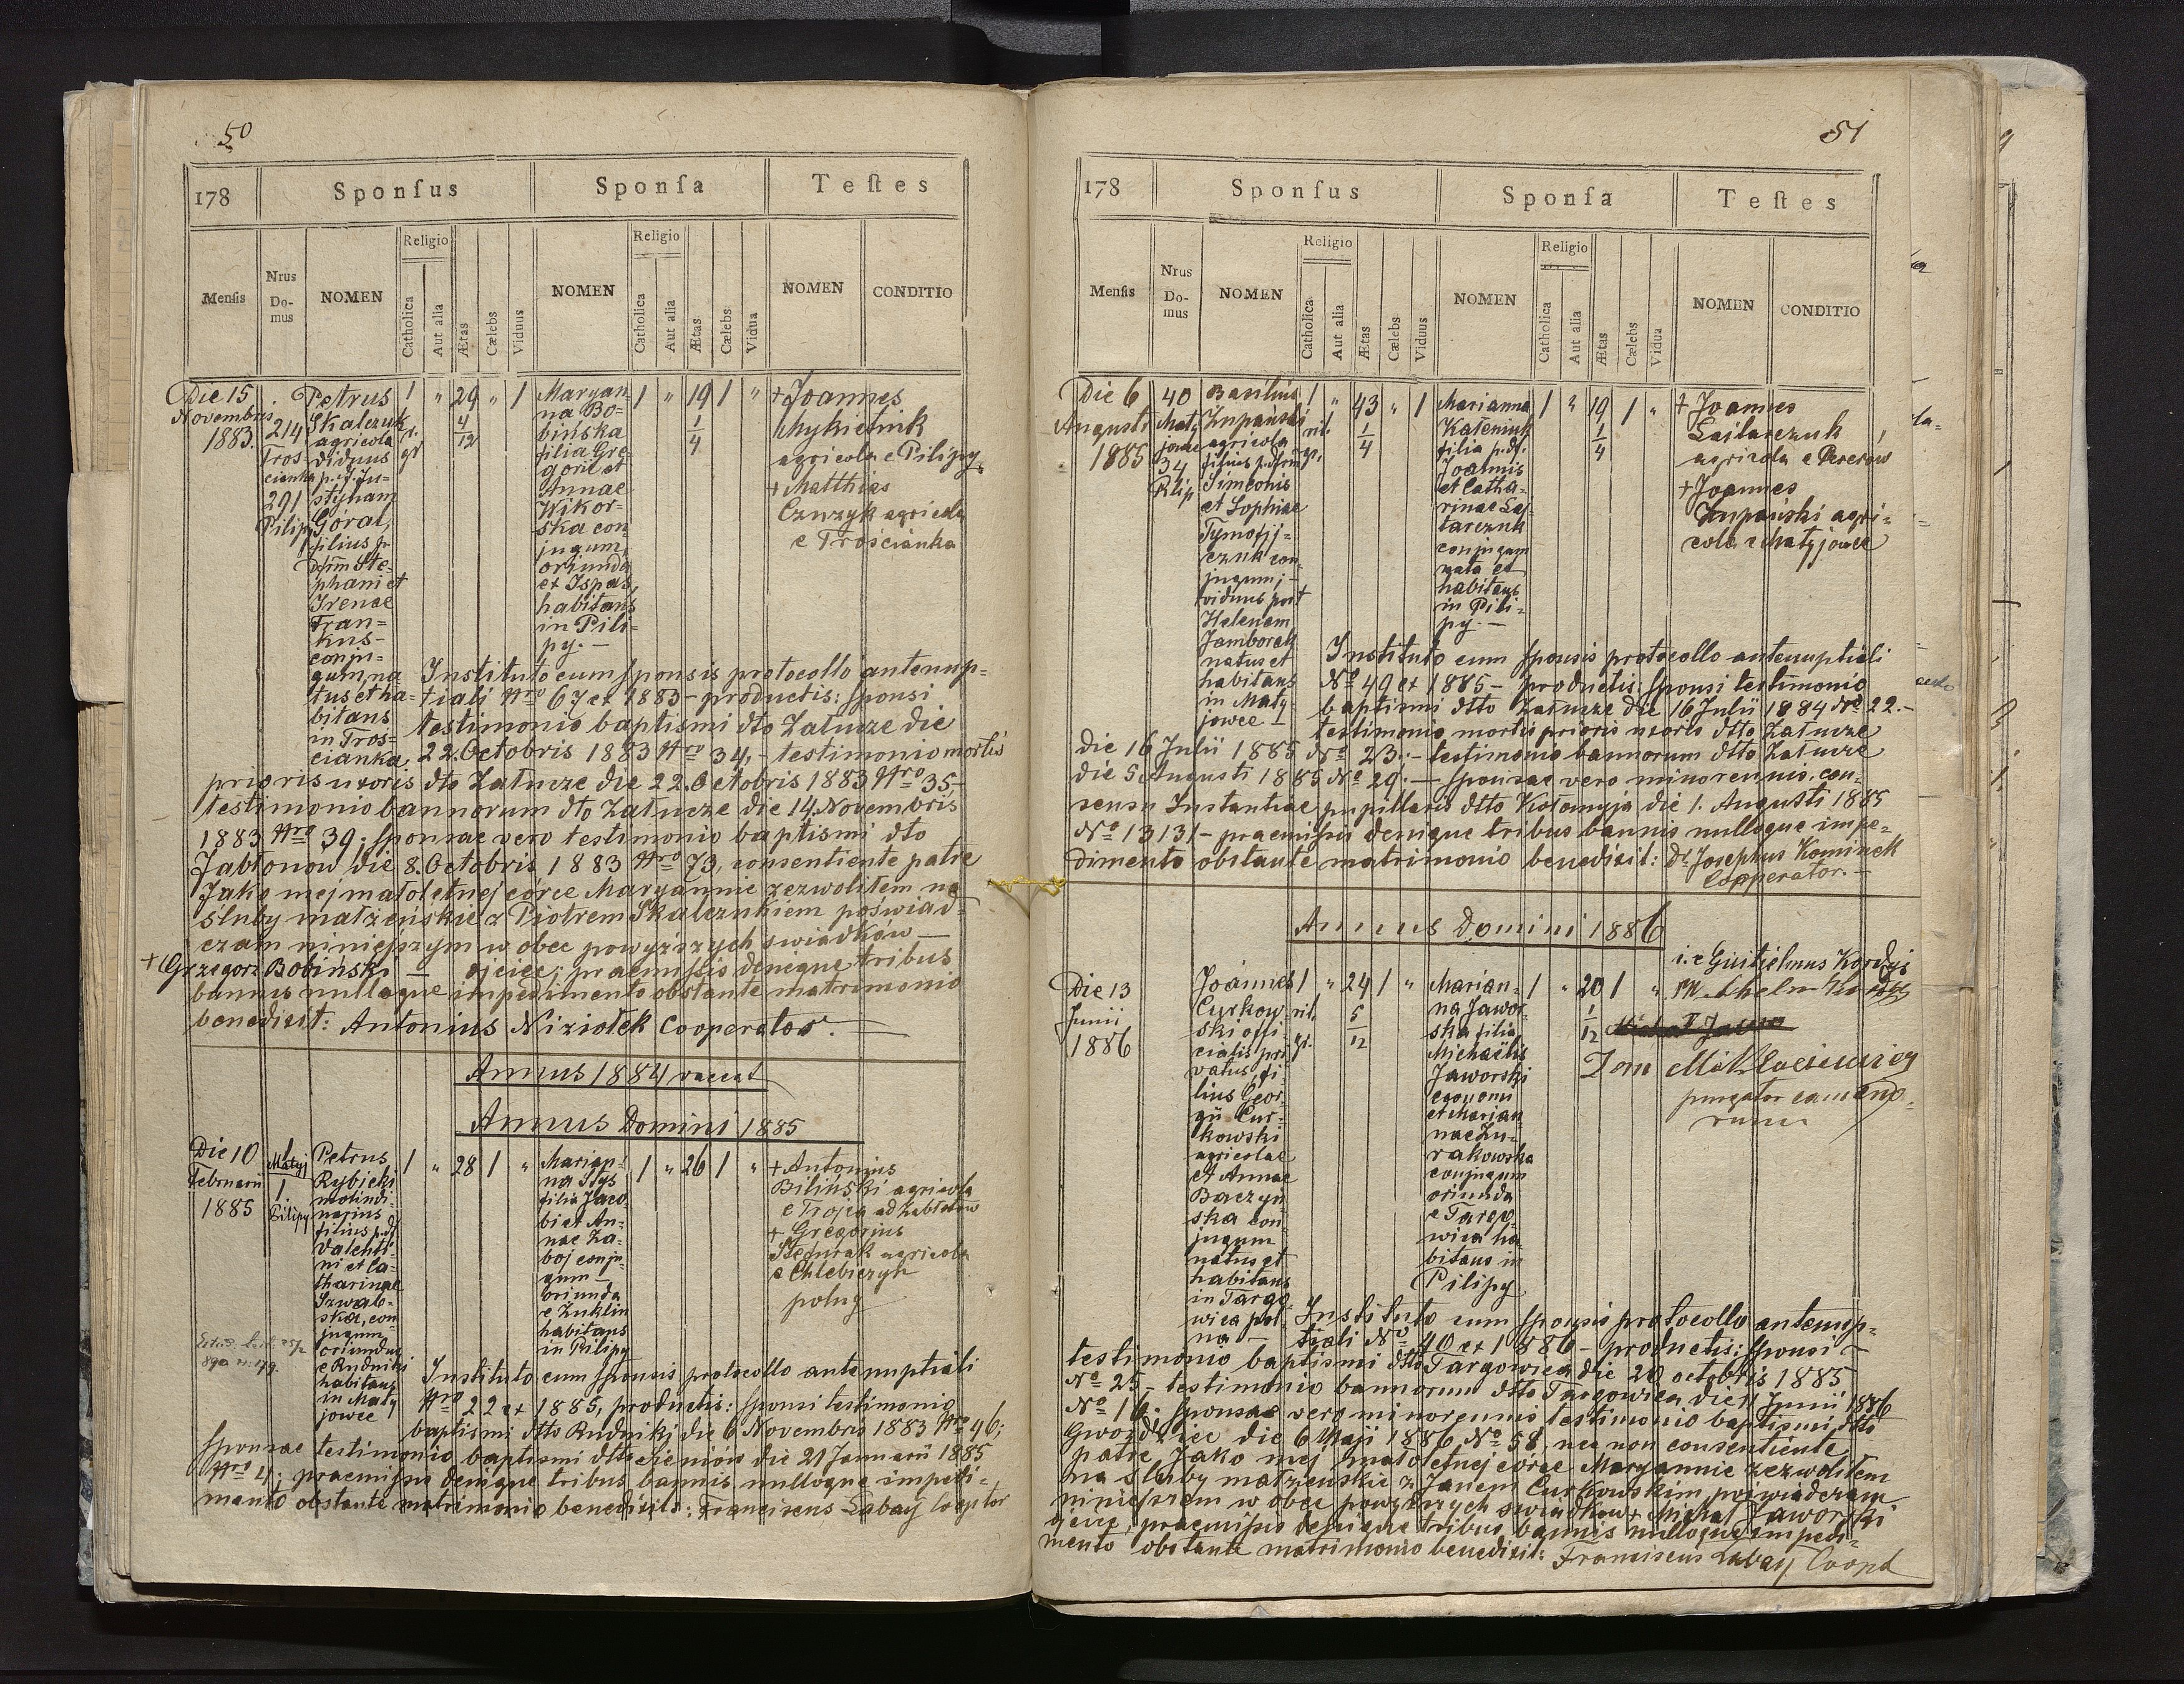 50
178 Sponsus Sponsa Testes
Mensis Nrus Do- mus NOMEN Religio Catholica Aut alia Ætas Cælebs Viduus NOMEN Religio Catholica Aut alia Ætas Cælebs Vidua NOMEN CONDITIO
Die 15
Novembris
1883.
214
Tros-
cianka
291
Pilipy
Petrus
Skalczuk
agricola
viduus
p. f. Ju-
stynam
Góral,
filius p.
dfm Ste-
phani et
Irenae
Fran-
kus-
conju-
gum, na-
tus et ha-
bitans
in Tros-
cianka,
1 " 29 " 1
rt. 4
gr 12
Maryan
na Bo-
bińska
filia Gre-
gorii et
Annae
Wikor-
ska con-
jugum,
oriunda
ex Ispas,
habitans
in Pili-
py. –
1 " 19 1 "
1
4
+ Joannes
Mykietiuk
agricola e Pilipy,
+ Matthias
Czwzyk agricola
e Trościanka
Instituto cum sponsis protocollo antenup-
tiali Nro 67 ex 1883 – productis: sponsi
testimonio baptismi dto Załucze die
22. Octobris 1883 Nro 34, – testimonio mortis
prioris uxoris dto Załucze die 22. Octobris 1883 Nro 35, –
testimonio bannorum dto Załucze die 14. Novembris
1883 Nro 39; sponsae vero testimonio baptismi dto
Jabłonow die 8. Octobris 1883 Nro 73, consentiente patre
Jako mej małoletnej córce Maryannie zezwoliłem na
śluby małżeńskie z Piotrem Skalczukiem poświad-
czam niniejszym w obec powyższych świadków –
+ Grzegorz Bobiński – ojciec; praemissis denique tribus
bannis nulloque impedimento obstante matrimonio
benedixit: Antonius Niziołek Cooperator. –
Annus 1884 vaccat
Annus Domini 1885
Die 10
Februarii
1885
Matyj
1
Pilipy
Petrus
Rybicki
molindi-
narius
filius p. df.
Valenti-
ni et Ca-
tharinae
Szwab-
ska, con-
jugum,
oriundus
e Rudniki
habitans
in Maty
jowce
1 " 28 1 "
Marian-
na Stys
filia Jaco
bi et An-
nae Za-
boj conju-
gum –
oriunda
e Zuklin
habitans
in Pilipy
1 " 26 1 "
+ Antonius
Biliński agricola
e Trojca ad Zabłotów
+ Gregorius
Stęgurak agricola
e Chlebiczyn
polny
Instituto cum sponsis protocollo antenuptiali
Nro 22 ex 1885, productis: sponsi testimonio
baptismi dtto Rudniki die 6 Novembris 1883 Nro 96;
sponsae testimonio baptismi dtto Sieniów die 21 Januarii 1885
Nro 4; praemissis denique tribus bannis nulloque impedi-
mento obstante matrimonio benedixit: Franciscus Łabay Cooptor
51
178 Sponsus Sponsa Testes
Mensis Nrus Do- mus NOMEN Religio Catholica Aut alia Ætas Cælebs Viduus NOMEN Religio Catholica Aut alia Ætas Cælebs Vidua NOMEN CONDITIO
Die 6
Augusti
1885
40
Maty
jowce
34
Pilip
Basilius
Zupański
agricola
filius p. dfm
Simeonis
et Sophiae
Tymofij-
czuk con-
jugum; –
viduus post
Helenam
Jamboraz
natus et
habitans
in Maty-
jowce –
1 " 43 " 1
rit. 1
gr. 4
Marianna
Kateniuk
filia p. df.
Joannis
et Catha-
rinae Łaj-
tarczuk
conjugum
nata et
habitans
in Pili-
py. –
1 " 19 1 "
1
4
+ Joannes
Łajtarczuk,
agricola e Pererow
+ Joannes
Zupański agri-
cola e Matyjowce
Instituto cum sponsis protocollo antenuptiali
No 49 ex 1885 – productis: sponsi testimonio
baptismi dtto Załucze die 16 Julii 1884 No 22. –
testimonio mortis prioris uxoris dtto Załucze
die 16 Julii 1885 No 23; – testimonio bannorum dtto Załucze
die 5 Augusti 1885 No 29. – sponsae vero minorennis con-
sensu Instantiae pupillaris dtto Kołomyja die 1. Augusti 1885
No 13131 – praemissis denique tribus bannis nulloque impe-
dimento obstante matrimonio benedixit: Dr Josephus Kominek
Cooperator. –
Annus Domini 1886
Die 13
Junii
1886
Joannes
Curkow-
ski offi-
cialis pri-
vatus, fi-
lius Geor-
gii Cur-
kowski
agricolae
et Annae
Baczyń-
ska con-
jugum
natus et
habitans
in Targo
wica pol-
na –
1 " 24 1 "
rit. 5
gr. 12
Marian-
na Jawor-
ska filia
Michaelis
Jaworski
economi
et Marian
nae Żu-
rakowska
conjugum
oriunda
e Targo-
wica ha-
bitans in
Pilipy
1 " 20 1 "
1
12
i. e Guilielmus Kordys
Wilhelm Kordys
Dom
purgator camino-
rum
Instituto cum sponsis protocollo antenup-
tiali No 40 ex 1886 – productis: sponsi –
testimonio baptismi dtto Targowica die 20 octobris 1885
No 25 – testimonio bannorum dtto Targowica die 11 Junii 1886
No 16. sponsae vero minorennis testimonio baptismi dtto
Gwoździec die 6 Maji 1886 No 58, nec non consentiente
patre Jako mej małoletnej córce Maryannie zezwoliłem
na śluby małżeńskie z Janem Curkowskim, poświadczam
niniejszem w obec powyższych świadków + Michał Jaworski
ojciec, praemissis denique tribus bannis nulloque impedi-
mento obstante matrimonio benedixit: Franciscus Łabay Coopd